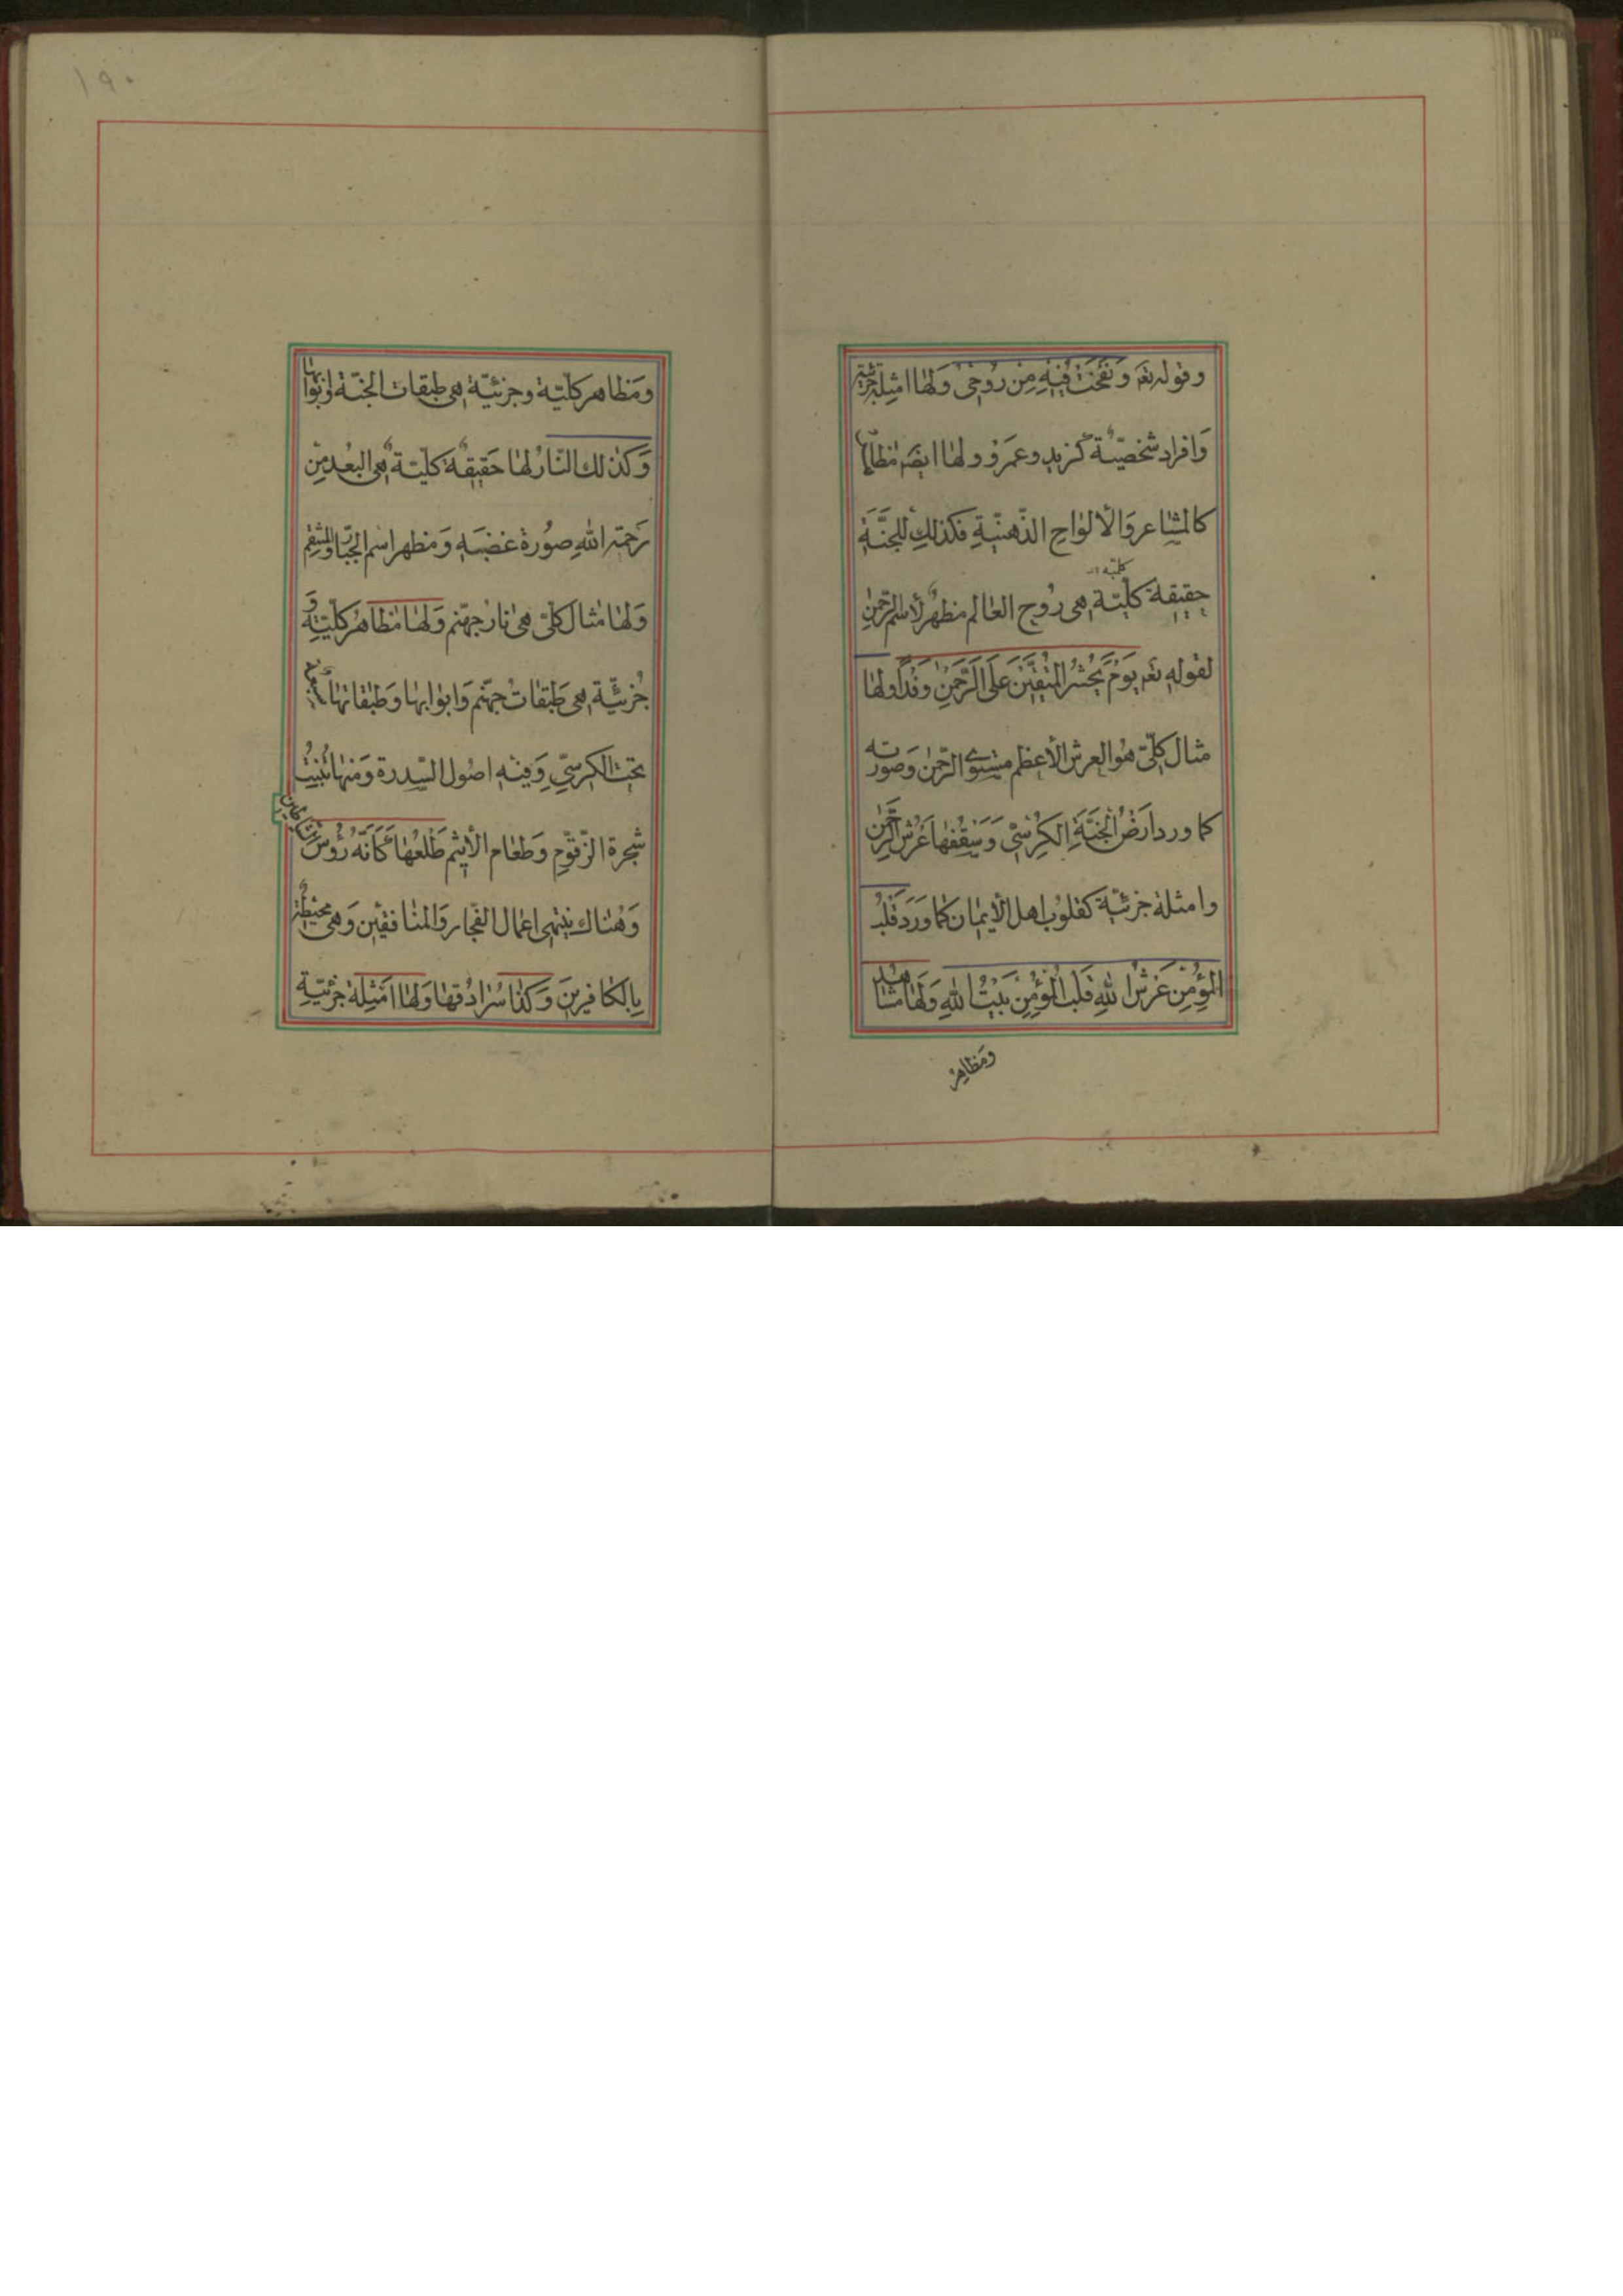 وقوله تعه وَنَفَخْتُ فِيْهِ مِنْ رُوحِي وَلَهٰا امثِلة جزئيّة
وَافراد شَخصّيّة كزيد وعَمرو ولهٰا ايضَه مظاهر
كالمشاعر وَالألوٰاح الذّهنيّةِ فكذلكِ لِلجنَّةِ
حقيقة كلّيّة هى رُوح العٰالم مظهرُ لأسم الرّحمٰنِ
كليّه
لقوله تعه يَوْمَ نَحْشُرُ المُتَّقِيْنَ عَلَى الرَّحْمٰنِ وَفْدًا ولهٰا
مثال كلّىّ هُو العرش الأعظم مُستوى الرّحمٰن وَصورته
كما ورد ارَضُ الجَنَّةِ الكُرْسِيّ وَسَقْفُهٰا عَرْش الرَّحمٰن
وامثلة جزئيّة كقلُوبِ اهل الأيمٰان كمٰا وَرَدَ قَلْبُ
المُؤمِنِ عَرْشُ اللهِ قَلْبُ المُؤْمِنِ بَيْتُ اللهِ وَلَهٰا مشاهد
ومَظاهِر
١٩٠
ومَظاهر كلّيّة وجزئيّة هى طبقات الجنّة وابوٰابهٰا
وَكذلك النّار لهٰا حَقيقَة كلّيّة هى البُعد مِن
رَحمة اللهِ صُورة غضبَهِ وَمظهر اسم الجبّار والمنتقم
وَلهٰا مثال كلّىّ هى نار جهنّم وَلهٰا مظاهر كلّيّة وَ
جُزئيّة هى طَبقات جهنّم وَابوٰابهٰا وَطبقاتهٰا سبعة
تحت الكرسىّ وَفيْهِ اصُول السّدرة وَمنهٰا تُنبِتُ
شجرة الزّقّوم وَطعٰام الأثيم طَلْعُهٰا كَاَنَّهُ رُؤُس شيٰاطين
وَهُنٰاك ينتهى اعمال الفجّار وَالمنٰافقين وَهى محيْطة
بِالكٰافِرينَ وَكذا سُرٰادِقهٰا وَلهٰا امثِلة جزئيّةِ